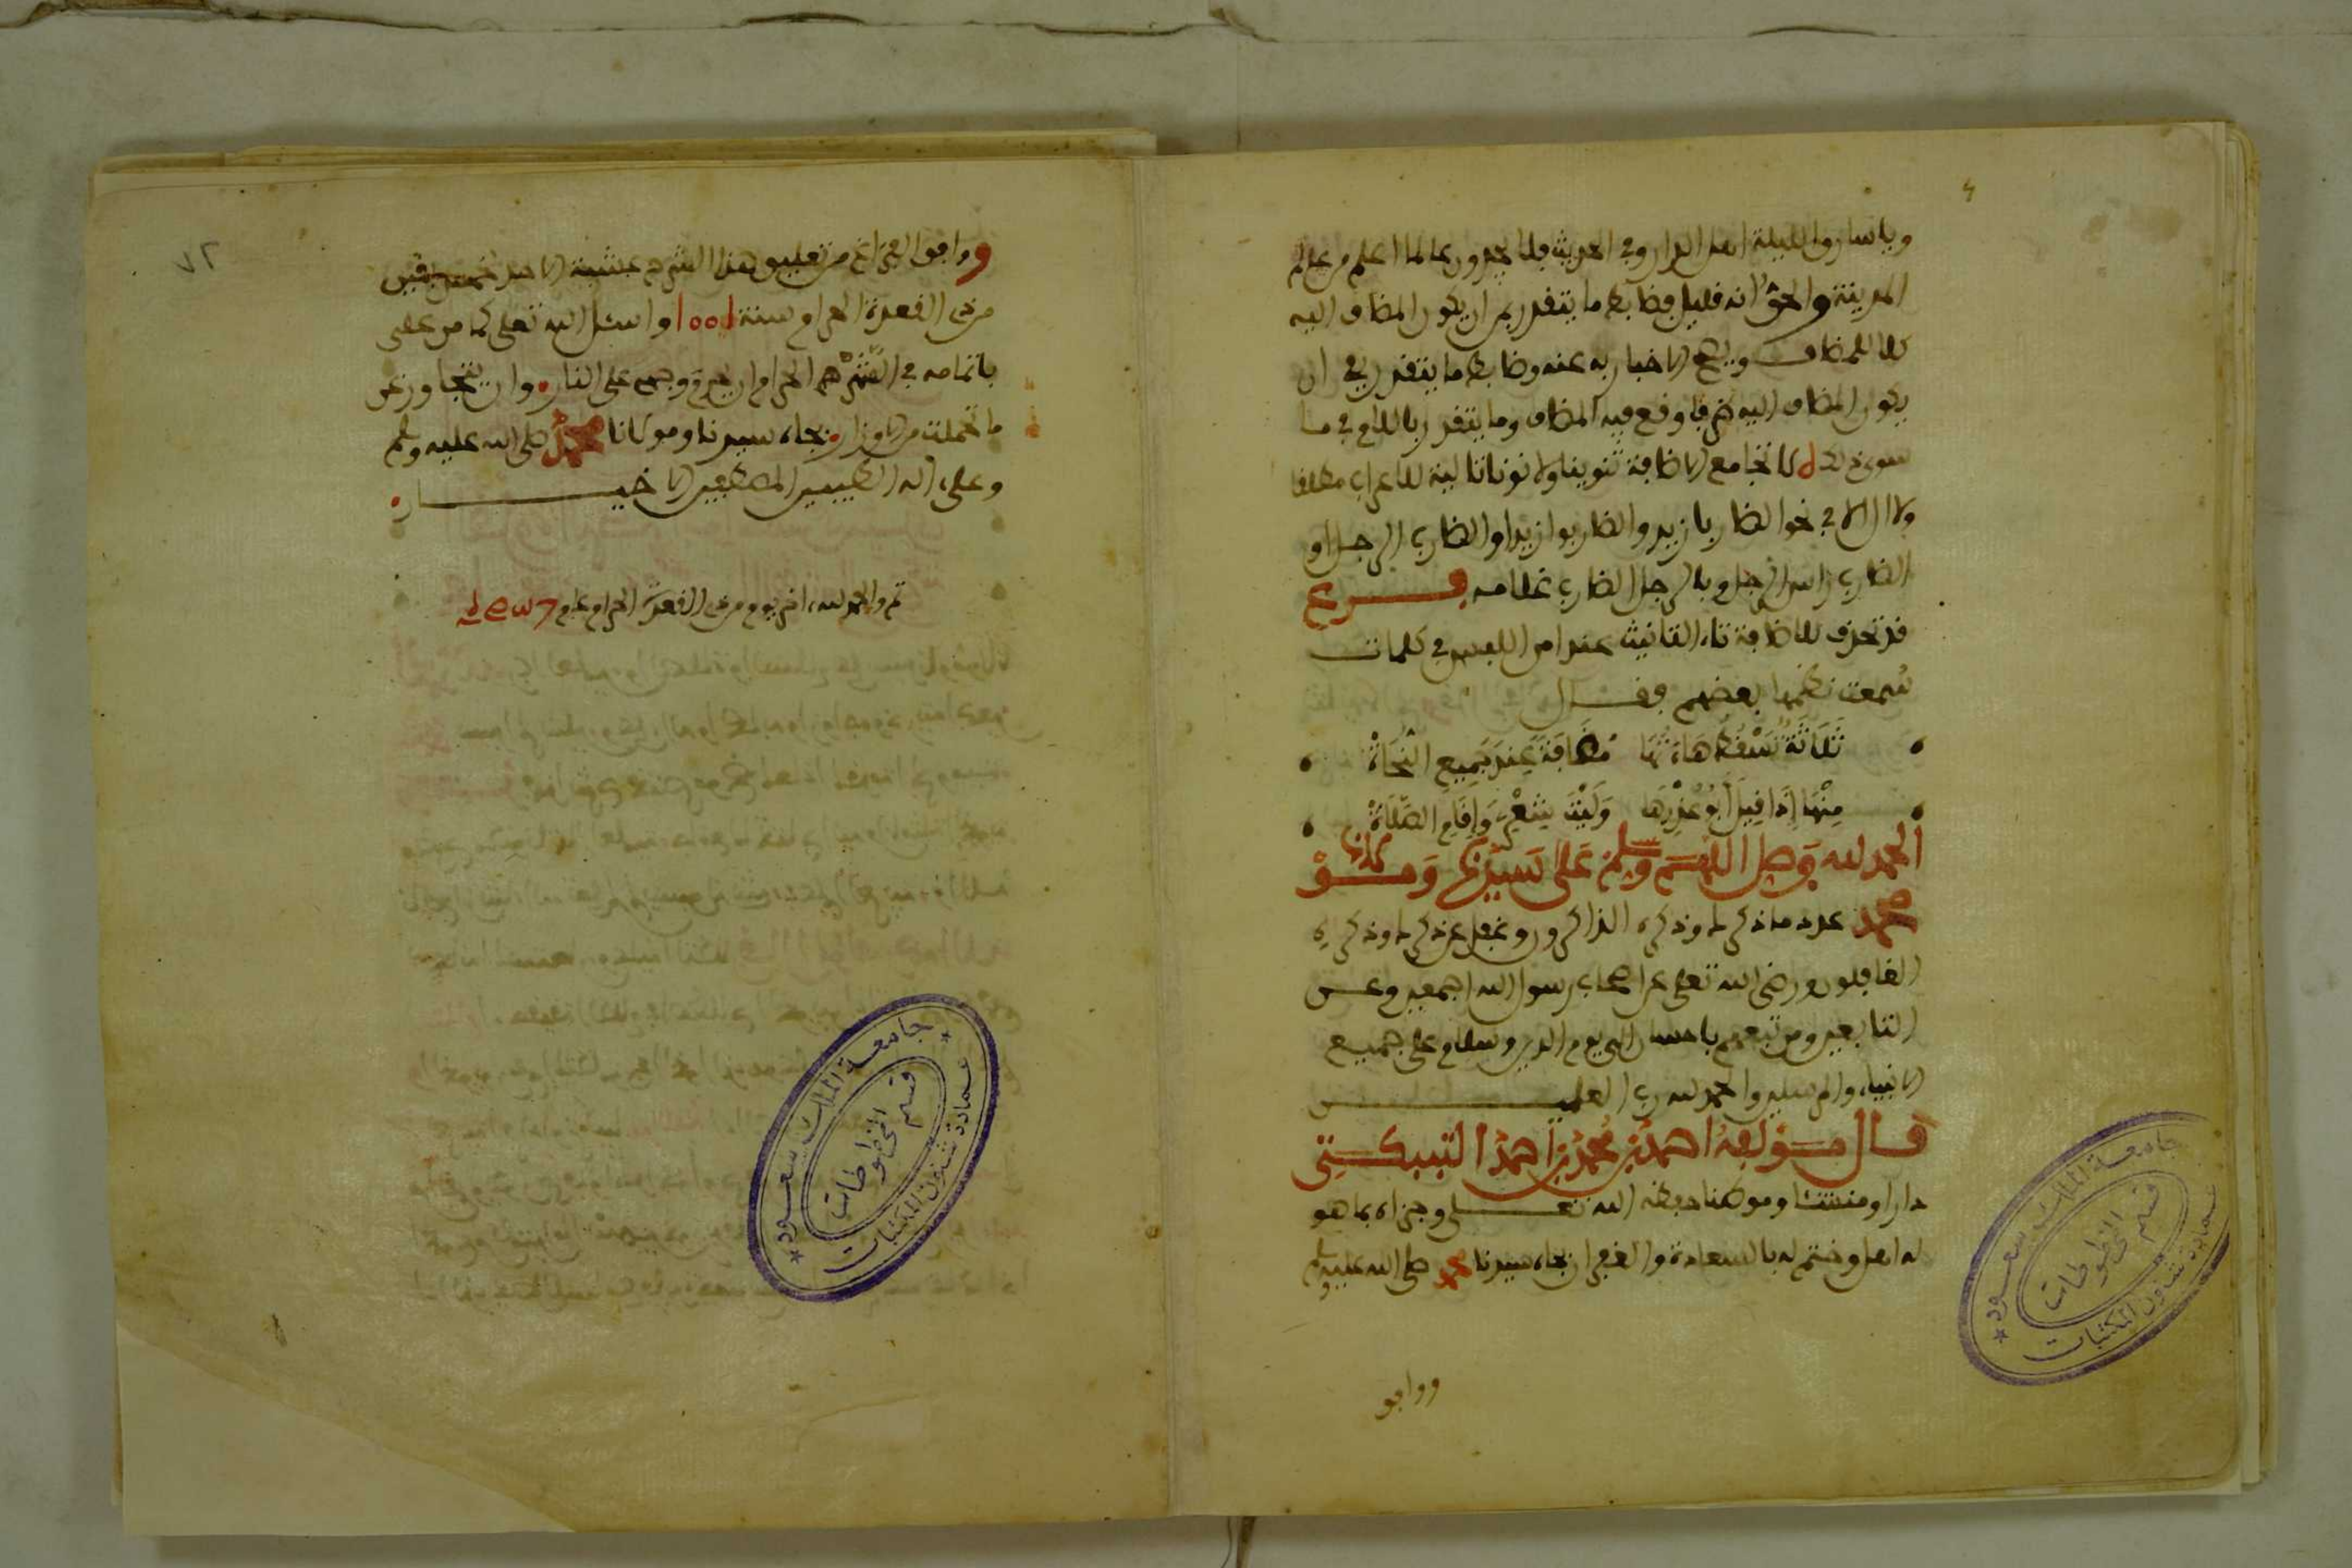 وياسارق الليلة اهل الدار وفي الحديث فلا يجدون عالما اعلم من عالم
المدينة والحق انه قليل وضابط ما يتقدر بمن ان يكون المضاف اليه
كلا للمضاف ويصح الاخبار به عنه وضابط ما يتقدر بفي ان
يكون المضاف اليه ظرفا وقع فيه المضاف وما يتقدر باللام في ما
سوى ذلك لا تجامع الاضافة تنوينا ولا نونا تالية للاعراب مطلقا
ولا ال الا في نحو الضاربا زيد والضاربوا زيد او الضارب الرجل او
الضارب راس الرجل وبالرجل الضارب غلامه فرع
قد تحذف للاضافة تاء التانيث عند امن اللبس في كلمات
سمعت نظمها بعضهم فقال
ثَلَاثَةٌ تَسْقُطُ هَاءَاتُهَا مُضَافَةً عِندَ جَمِيعِ النُّحَاةْ
مِنْهَا إِذَا قِيلَ أَبُو عُذْرِهَا وَلَيْتَ شِعْرِي وَإِقَامِ الصَّلَاةْ
الحمد لله وصل اللهم وسلم على سيدنا ومولانا
محمد عدد ما ذكرك وذكره الذاكرون وغفل عن ذكرك وذكره
الغافلون ورضي الله تعلى عن اصحاب رسول الله اجمعين وعن
التابعين ومن تبعهم باحسان الى يوم الدين وسلام على جميع
الانبياء والمرسلين والحمد لله رب العلمين
قال مؤلفه احمد بن محمد بن احمد التنبكتي
دارا ومنشئا وموطنا حفظه الله تعلى وجزاه بما هو
له اهل وختم له بالسعادة والغفران بجاه سيدنا محمد صلى الله عليه وسلم
ووافق
٧٢
ووافق الفراغ من تعليق هذا الشرح عشية الاحد
من ذي القعدة الحرام سنة واسئل الله تعلى كما من علي
باتمامه في الشهر الحرام ان يحرم وجهي على النار وان يتجاوز عن
ما تحملت من الاوزار بجاه سيدنا ومولانا محمد صلى الله عليه وسلم
وعلى ءاله الطيبين المصطفين الاخيار
تم والحمد لله اخر يوم من ذي القعدة الحرام عام
جامعة الملك سعود
قسم المخطوطات
عمادة شئون المكتبات
جامعة الملك سعود
قسم المخطوطات
عمادة شئون المكتبات